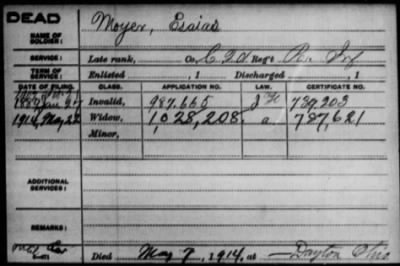 DEAD
NAME OF SOLDIER: Moyer, Esaias
SERVICE: Late rank, Co. Reg't Pa. Inf
TERM OF SERVICE: Enlisted , 1 Discharged , 1
DATE OF FILING. CLASS. APPLICATION NO. LAW. CERTIFICATE NO.
Jan 27 Invalid, 987.665 739,203
1914, May 22 Widow, 1,028,208. a 787,621
Minor,
ADDITIONAL SERVICES:
REMARKS:
Died May 7, 1914, at Dayton Ohio